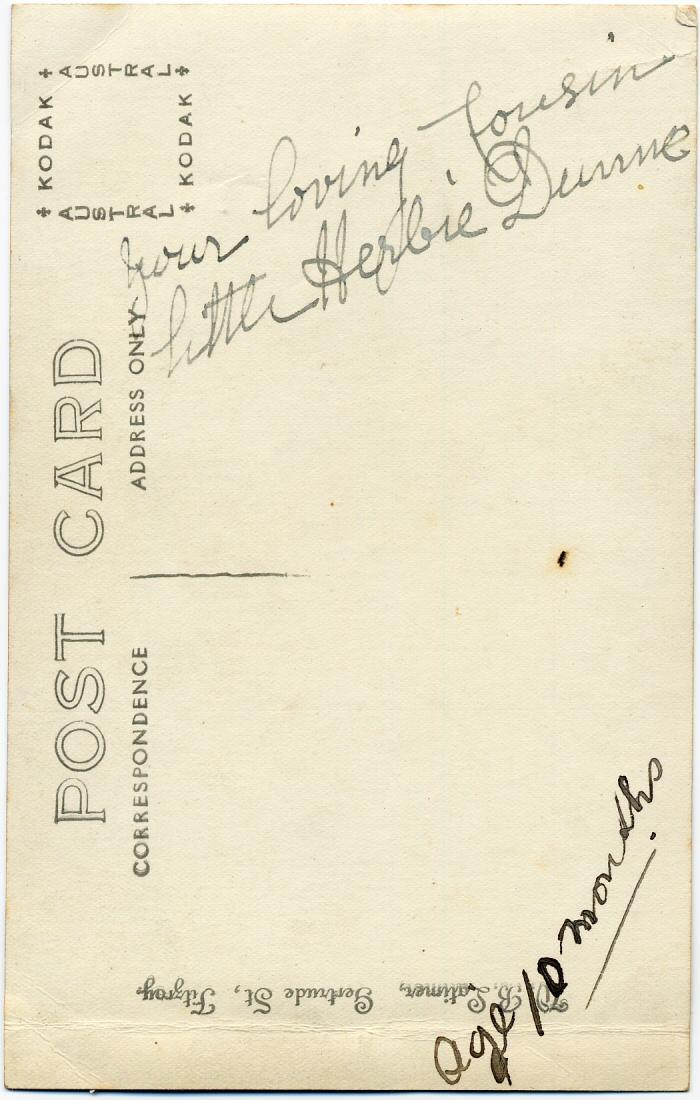 AUSTRAL
KODAK
KODAK
AUSTRAL
POST CARD
CORRESPONDENCE
ADDRESS ONLY
your loving Cousin
little Herbie Dunne
age 10 months
B. Latimer, Gertrude St., Fitzroy.